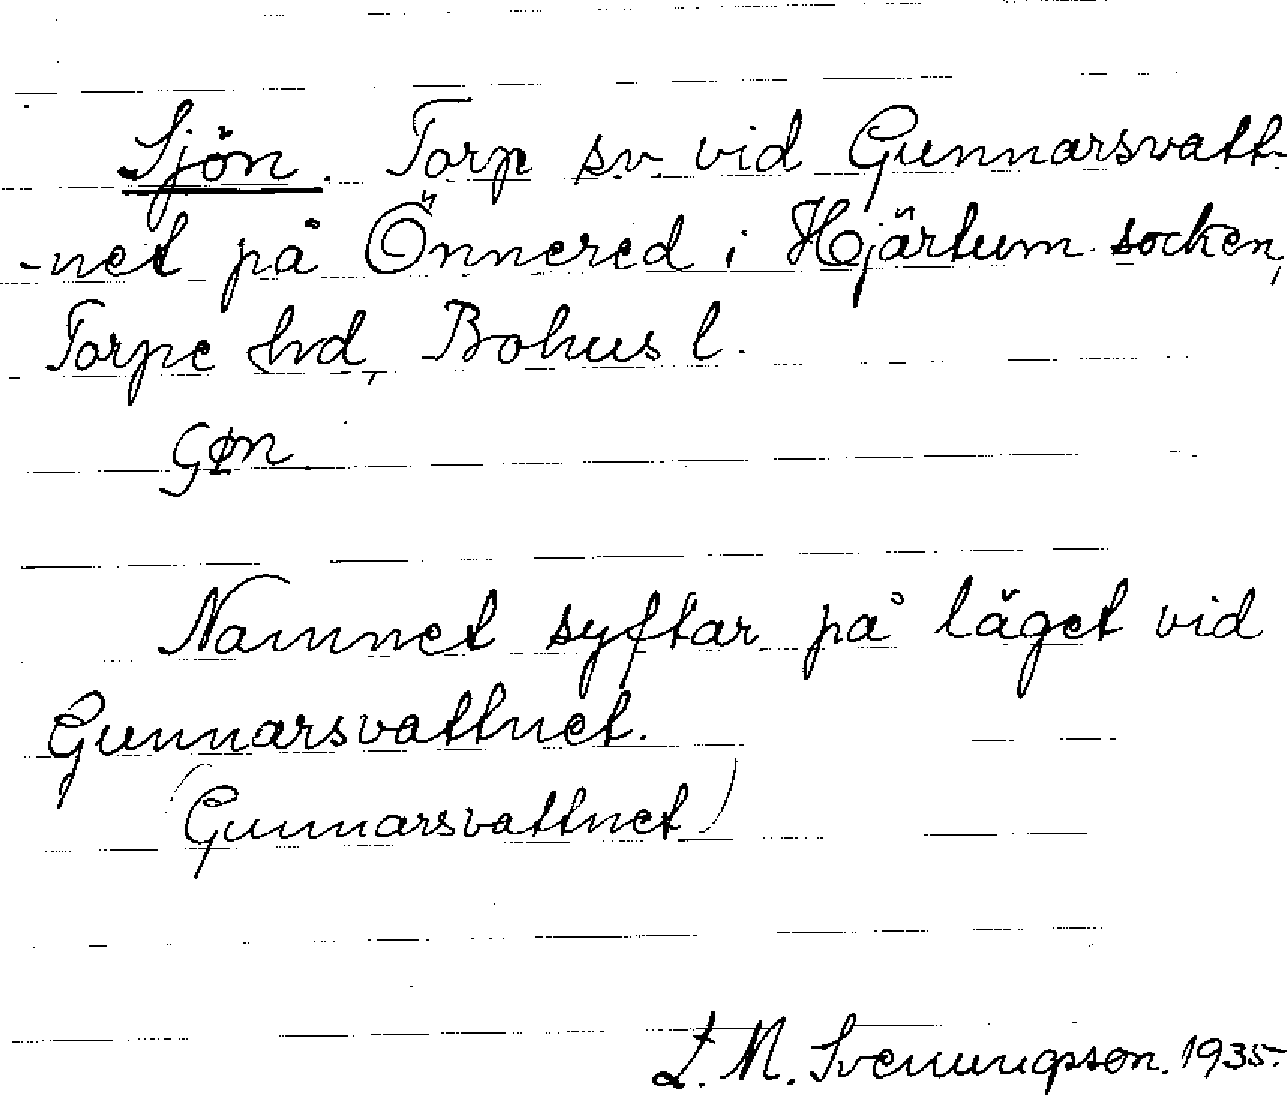 Sjön. Torp sv. vid Gunnarsvatt-
-net på Önnered i Hjärtum socken,
Torpe hd, Bohus l.
Gøn
Namnet syftar på läget vid
Gunnarsvattnet.
(Gunnarsvattnet)
L. M. Svenungsson. 1935.